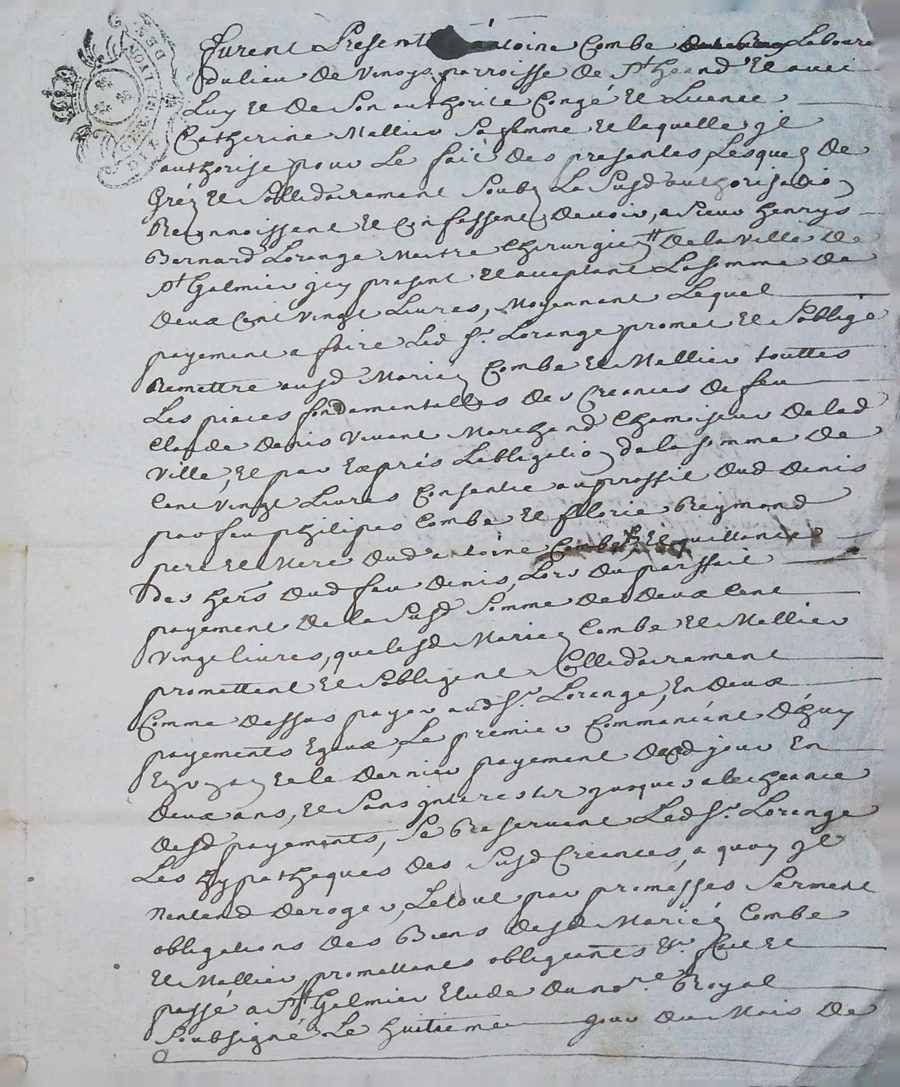 GEN DE LYON
Furent Presents Antoine Combe Laboure
du lieu de Vinoys parroisse de St heand Et avec
Luy Et De Son authorité Congé Et Licence
Catherine Mallieu Sa femme Et laquelle jl
authorise pour Le fait Des presentes, Lesquelz De
Gréz Et Sollidairement Soubz La Susd authorisation
Reconnoissent Et Confassent Devoir, a Sieur henrys
Bernard Lorange Maitre Chirurgien De la Ville De
St Galmier jcy present Et acceptant La Somme De
Deux Cent Vingt Livres, Moyennant Lequel
payement a faire Led Sr. Lorange promet Et Soblige
Remettre ausd Mariéz Combe Et Mallieu touttes
Les pieces fondamentalles Des Creances De feu
Claude Denis Vivant Marchand Chamoiseur De lad
Ville, Et par Exprés Lobligation de la Somme De
Cent Vingt Livres Consantie au proffit Dud Denis
par feu philipes Combe Et florie Reymond
pere Et Mere Dud antoine Combe, Et quittance
Des hers Dud feu Denis, Lors Du parffait
payement De la Susd Somme De Deux Cent
Vingt livres, que lesd Mariéz Combe Et Mallieu
promettent Et Sobligent Sollidairement
Comme Dessus payer aud Sr. Lorange, En Deux
payements Egaux, Le premier Commancent D'huy
En un an Et le Dernier payement Dud jour En
Deux ans, Et Sans interest jusques a lecheance
Desd payements, Se Reservent Led Sr. Lorange
Les hypotheques Des Susd Creances, a quoy jl
Nentend Deroger, Le tout par promesses Serment
obligations Des Biens Desd Mariéz Combe
Et Mallieu promettants obligeants Etc. fait Et
passé a St Galmier Etude Du nore. Royal
Soubsigné Le huitieme jour Du Mois De